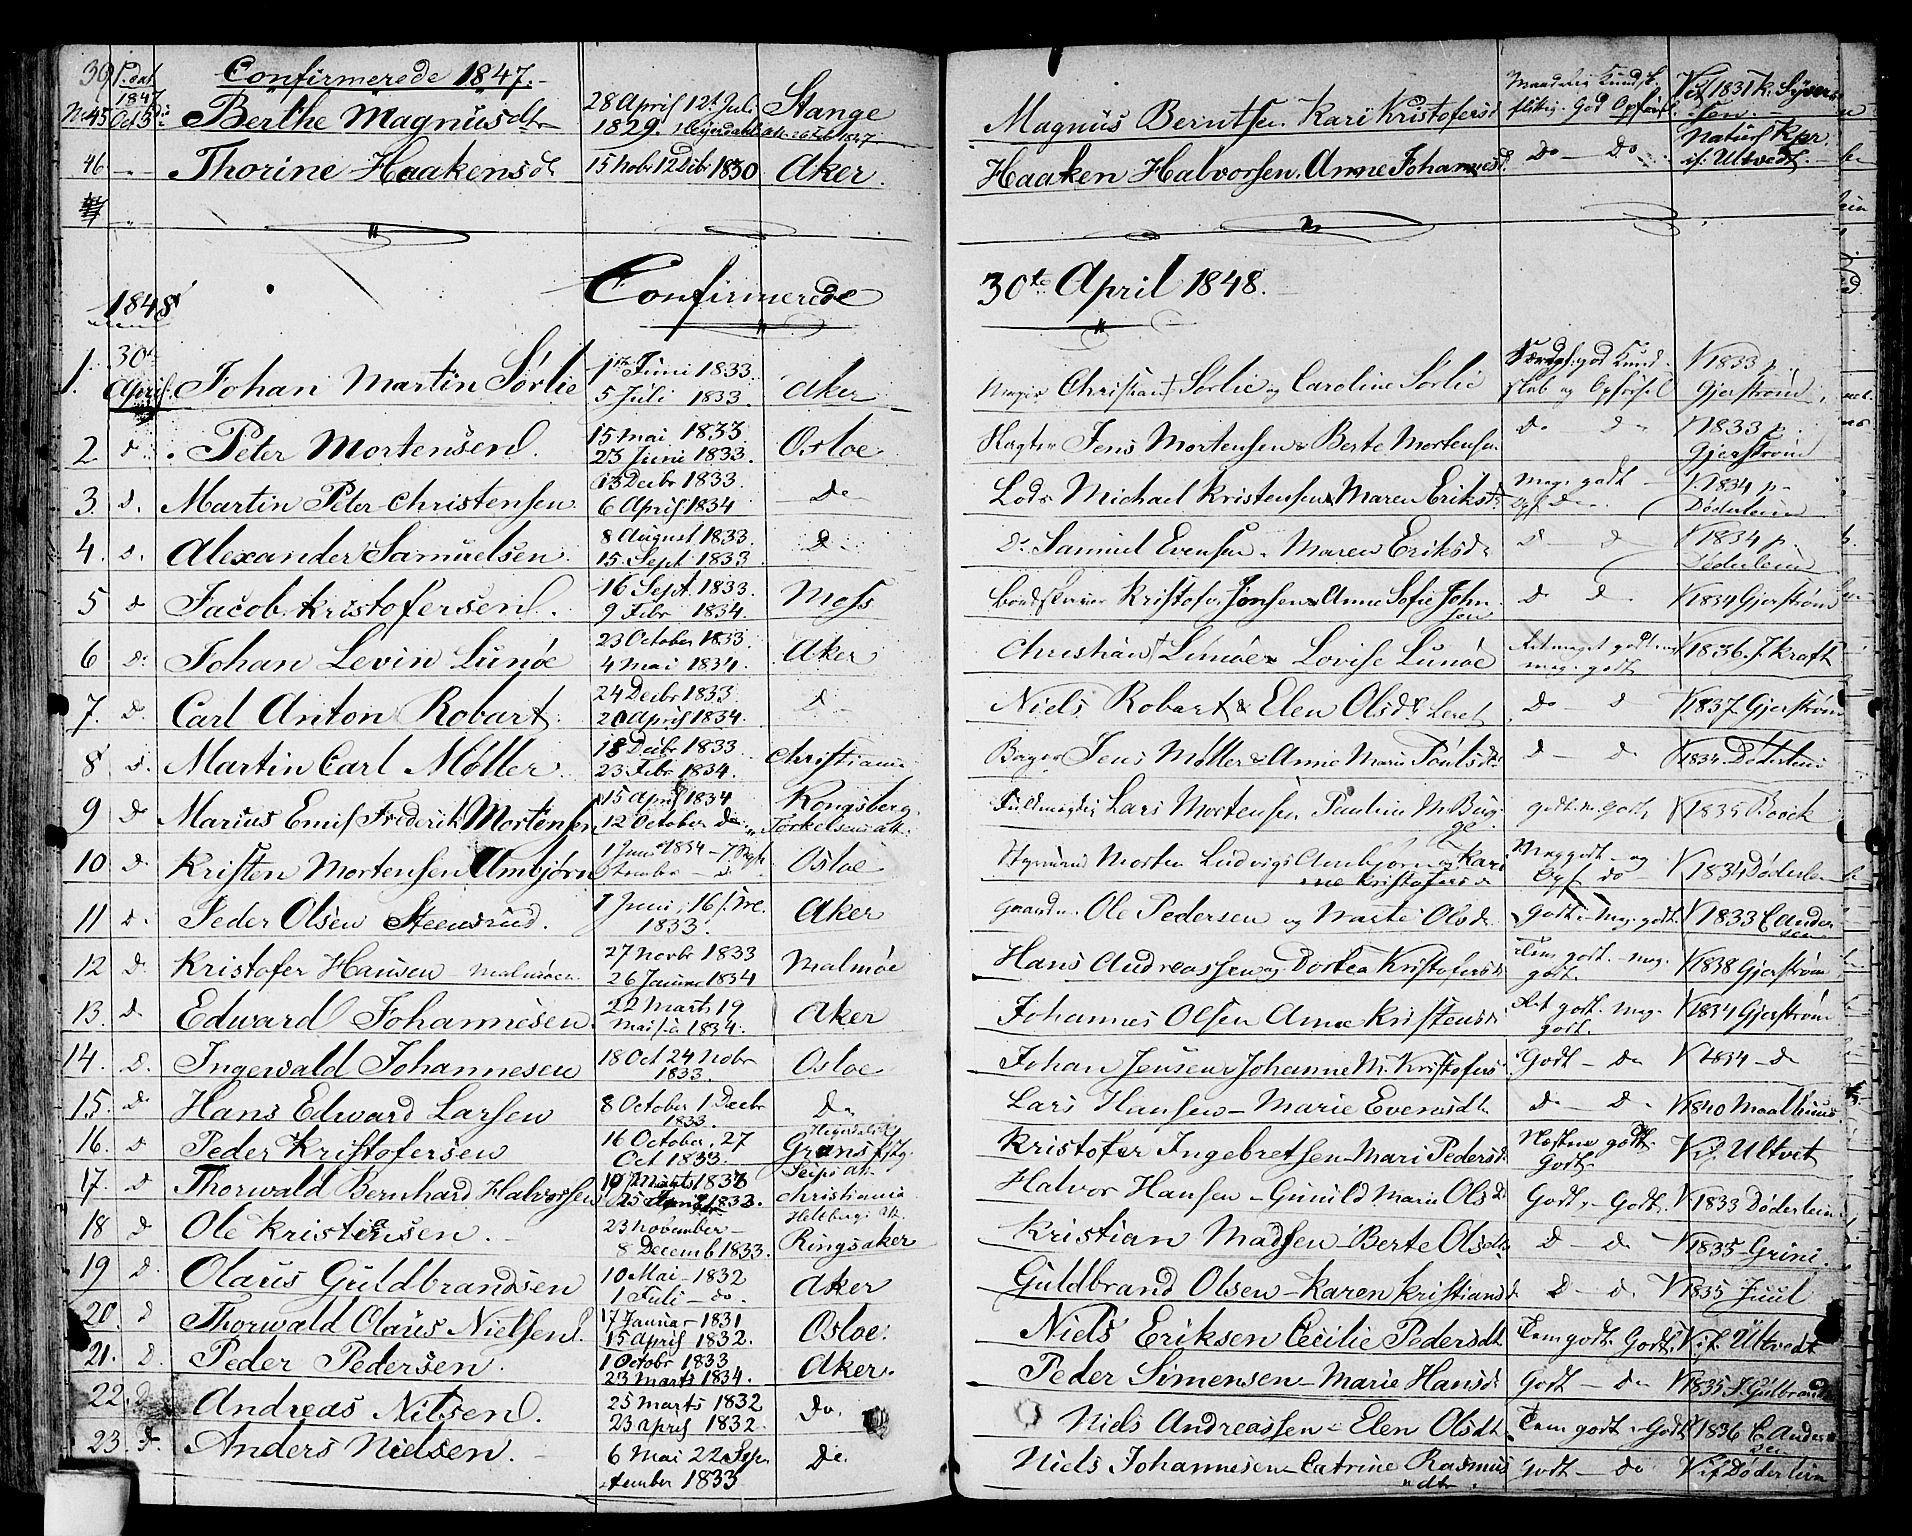 30 P. dat Confirmerede 1847.
1847
No 45 Berthe Magnusdtr 28 April 12t Juli 1829. Stange Magnus Berntsen Kari Kristofersd
V. 1831 K.
46 Thorine Haakensd 15 Nobr 12 Debr 1830 Aker. Haaken Halvorsen. Anne Johannesd. Do – Do Naturl. Kpr. if. Ultvedt.
1848 Confirmerede 30te April 1848.
1. 30te April. Johan Martin Sørlie 1ste Juni 1833. 5 Juli 1833. Aker Christian Sørlie og Caroline Sørlie god Kundskab og Opførsel V 1833 p. Gjerstrøm
2 d. Peter Mortensen. 15 Mai 1833 23 Juni 1833. Osloe Jens Mortensen & Berte Mortensen do do V 1833 p. Gjerstrøm
3. d. Martin Peter Christensen 13 Decbr 1833. 6 April 1834 Do Lods Michael Kristensen & Maren Eriksd. Meg. godt V. 1834 p. Døderlein
4. d. Alexander Samuelsen 8 August 1833. 15. Sept 1833 D. d. Samuel Evensen. Maren Eriksd. d d V 1834 p. Døderlein
5 d Jacob Kristofersen. 16 Sept. 1833. 9 Febr 1834. Moss Kristofer Jonsen & Anne Sofie Johnsen d d V 1834 Gjerstrøm
6 d. Johan Levin Lunøe 23 October 1833 4 Mai 1834. Aker Christian Lunøe & Lovise Lunøe meg. godt V 1836. J. Kraft
7. d. Carl Anton Robart. 24 Decbr 1833 20 April 1834. d Niels Robart & Elen Olsd. Do – d V 1837 Gjerstrøm
8 d. Martin Carl Møller. 18 Decbr 1833. 23 Febr 1834. Christiania Borger Jens Møller & Anne Marie Poulsd. d – d V 1834. Døderlein
9 d Marius Emil Frederik Mortensen 15 April 1834 12 October do Kongsberg Torkelsens att. Lars Mortensen Pauline M. Bugge godt. m. godt V 1835 Boeck
10 d. Kristen Mortensen Ambjørn 1 Juni 1834 – 7 September – d. Osloe Styrmand Morten Ludvigs Ambjørn og Karine Kristofersd Meg godt – og Opf. do V 1834 Døderlein
11 d. Peder Olsen Steensrud. 7 Juni, 16 1833. Aker Gaardm. Ole Pedersen og Marte Olsd. Godt – meg. godt. V 1833 C. Andersen
12 d. Kristofer Hansen – Malmøen 27 Novbr 1833 26 Januar 1834 Malmøe Hans Andreassen og Dortea Kristofersd Tem. godt – meg. godt. V 1838 Gjerstrøm
13. d. Edward Johannesen. 22 Marts 19 Mai 1834. Aker Johannes Olsen Anne Kristensd. godt. meg. godt. V 1834 Gjerstrøm
14. d. Ingewald Johannesen 18 Oct 24 Nobr 1833. Osloe Johan Jensen & Johanne M. Kristofersd Godt – Do V 1834 – Do
15. d. Hans Edward Larsen 8 October 1 Decbr 1833. Do Lars Hansen – Marie Evensdt. Do – Do V 1840 Maalhuus
16. d Peder Kristofersen 16 October, 27 Oct 1833. Grans Pstg. Kristofer Ingebretsen – Mari Pedersd Godt. V. if. Ultvet
17. d Thorwald Bernhard Halvorsen 10 Marts 1833 1833. Christiania Halvor Hansen – Gunild Marie Olsd. Godt – Godt. V 1833 Døderlein
18 d Ole Kristensen. 23 November – 8 Decemb 1833. Ringsaker Kristian Madsen – Berte Olsdt. D – d V 1835 – Grini.
19 d. Olaus Guldbrandsen 10 Mai – 1832 1 Juli – do. Aker Guldbrand Olsen – Karen Kristiansd. D – d. V 1835 Juul
20. d Thorwald Olaus Nielsen. 17 Januar 1831 15 April 1832. Osloe. Niels Eriksen Cecilie Pedersdt. Tem godt. Godt. V. if. Ultvedt
21. d. Peder Pedersen. 1 Octobr 1833 23 Marts 1834. Aker. Peder Simensen – Marie Hansd. Godt – Do V 1835 J. Gulbrands
22. d. Andreas Nilsen. 25 Marts 1832 23 April 1832. Do. Niels Andreassen – Elen Olsdt. Tem godt – Godt V 1836 C. Andersen
23. d. Anders Nielsen. 6 Mai 22 September 1833 Do. Niels Johannesen – Catrine Rasmusdtr. Godt – Do V if. Døderlein